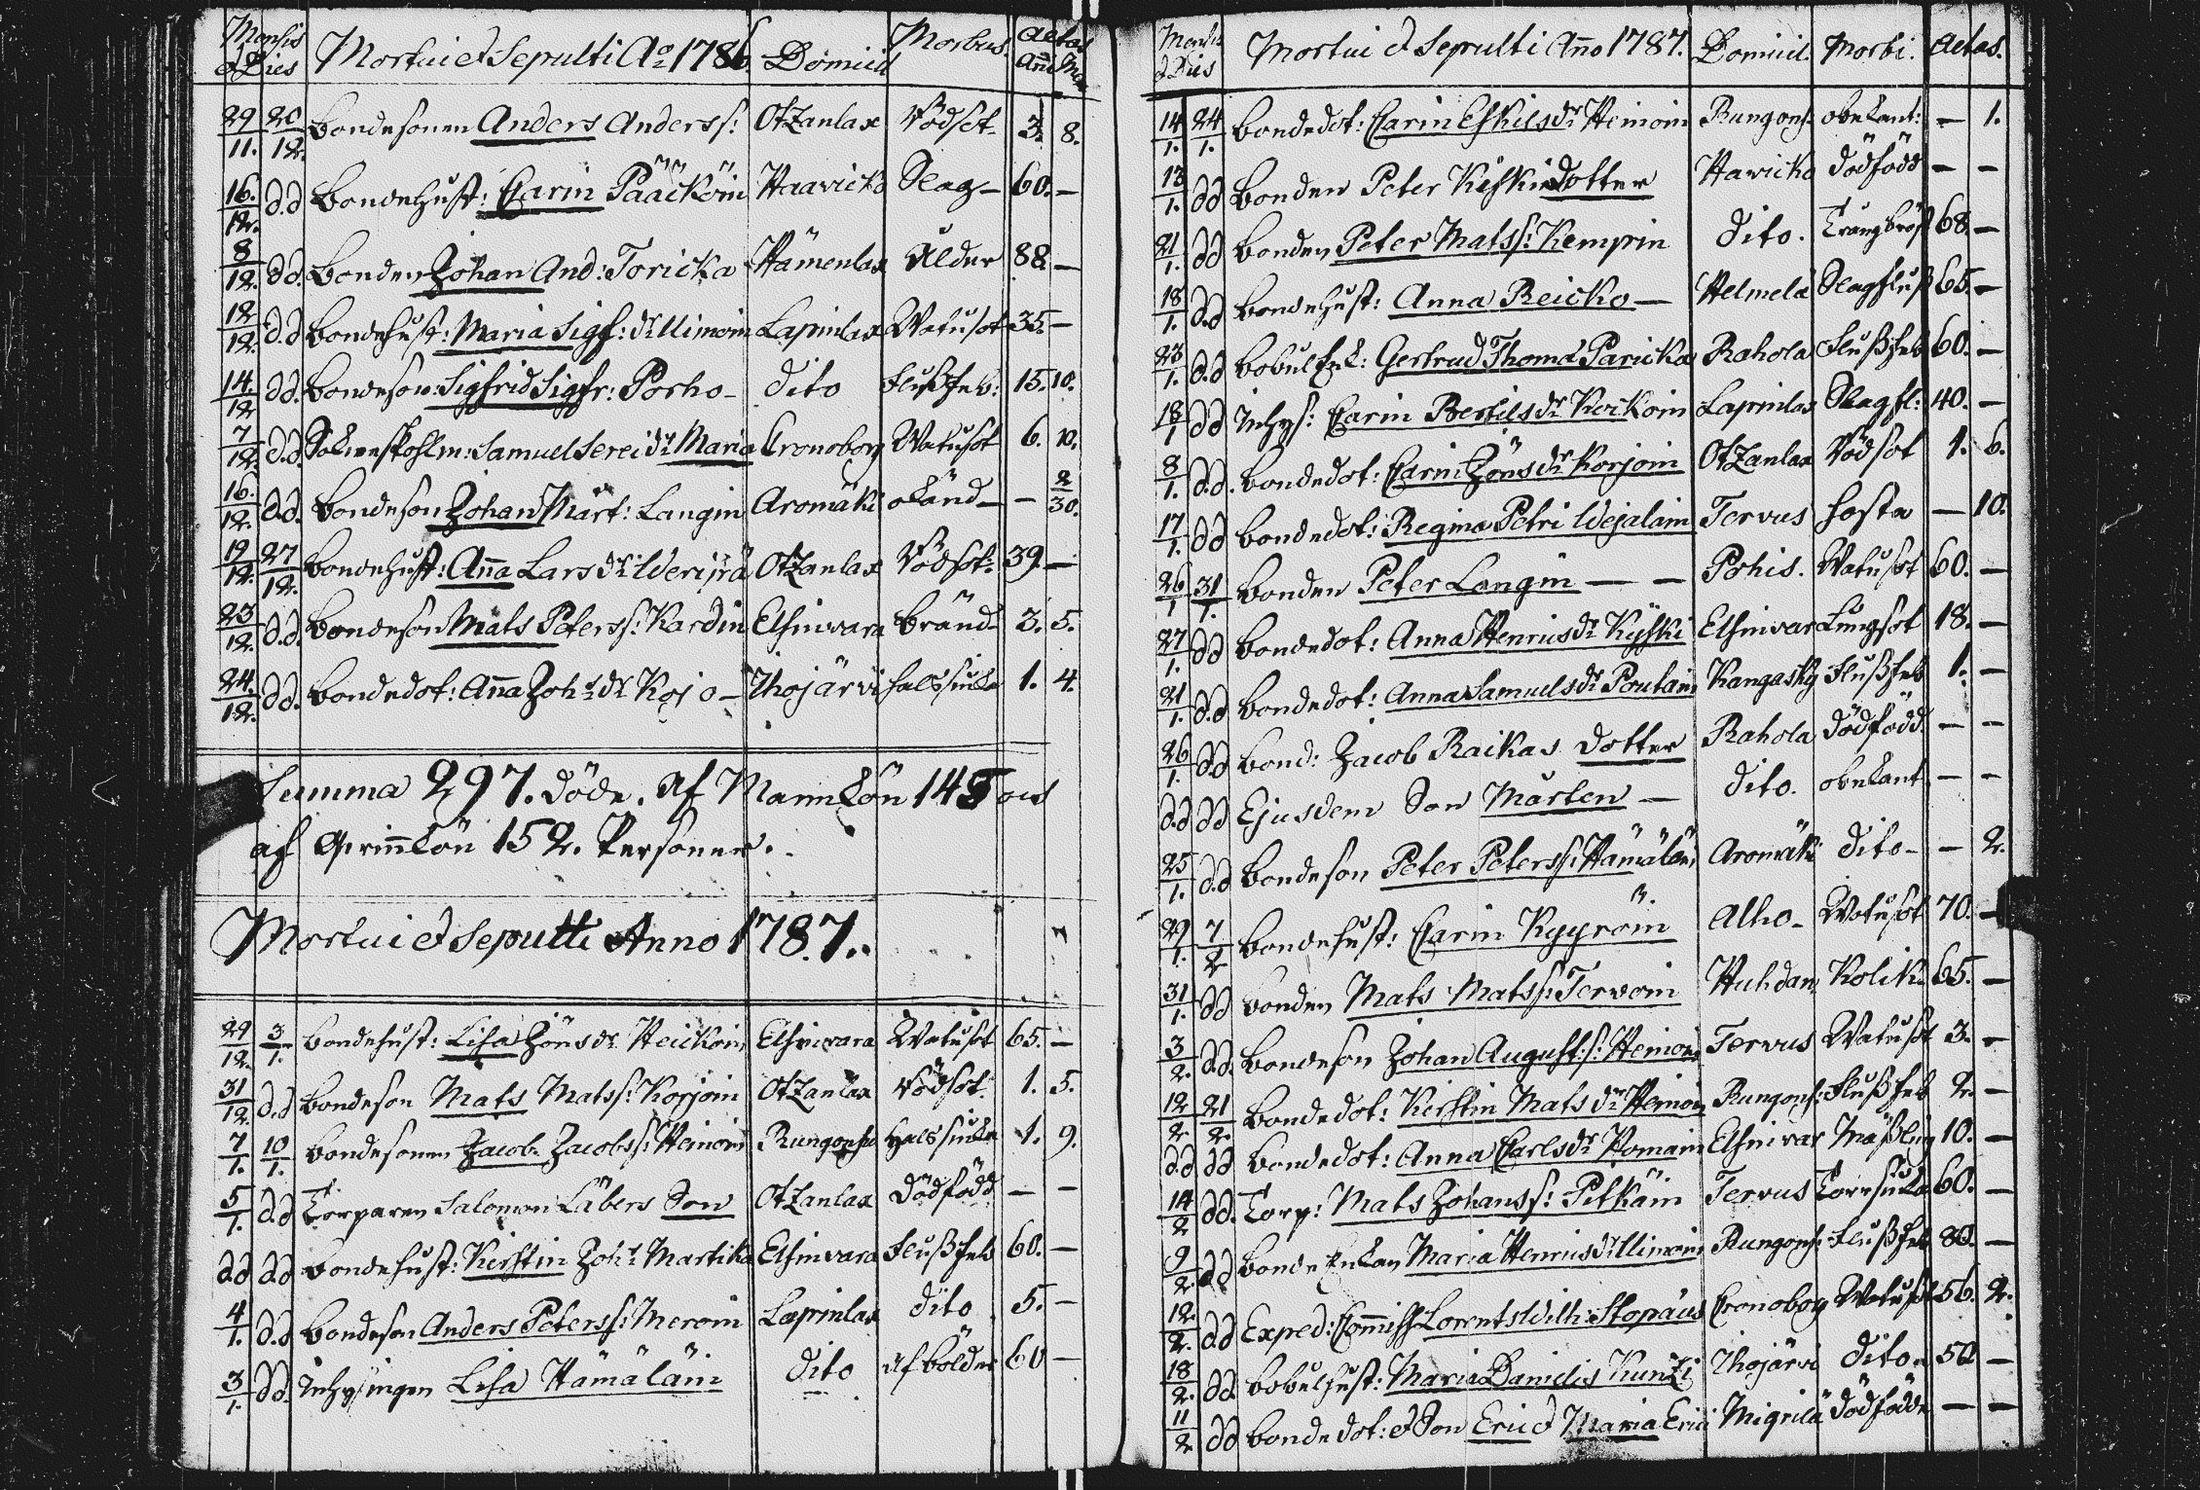 Mensis & Dies Mortui et Sepulti Ao 1786. Domicil Morbus. Aetas Añi Men
29/11. 20/12. Bondesonen Anders Anderss: Otzanlax Rödsot 3. 8.
16./12. d.d Bondehust: Carin Pääcköin Haavicko Slag – 60. –
8/12. dd. Bonden Johan And: Toricka Hämenlax Ålder 88. –
12/12. d.d Bondehust: Maria Sigf: dr Ilimoin Lapinlax Watusot 35. –
14./12 dd. Bondeson: Sigfrid Sigfr: Porho – dito Flussfeb: 15. 10.
7/12. d.d. Samuel dr Maria Cronoborg Watusot 6. 10.
16./12. d.d. Bondeson Johan Märt: Langin Aromäki okänd – – 2/30.
19/12. 27/12. Bondehust: Aña Lars dr Werijrä Otzanlax Rödsot: 39. –
23/12. d.d. Bondeson Mats Peterss: Kardin Elsinwara bränd 3. 5.
24./12. dd. Bondedot: Aña Joh: dr Kojo – Ihojärvi halssiuka 1. 4.
Summa 297. döde. Af Mannkön 145 och
af Qvinnkön 152. Personer.
Mortui et Sepulti Anno 1787.
29/12. 3/1. Bondehust: Lisa Jöns dr Heickoin Elsinwara Watusot 65. –
31/12. d.d Bondeson Mats Matss: Korjoin Otzanlax Rödsot: 1. 5.
7/1. 10/1. Bondesonen Jacob Jacobss: Heinoin Rungonsu Halssiuka 1. 9.
5/1. d.d Torparen Salomon Läbers Son Otzanlax Dödfödd – –
dd d.d Bondehust: Kirstin Joh: Martika Elsinwara Flussfeb 60. –
4/1. d.d Bondeson Anders Peterss: Meroin Lapinlax dito 5. –
3/1. dd. Inhysingen Lisa Hämäläin dito af bölder 60 –
Mensis & Dies Mortui et Sepulti Año 1787. Domicil. Morbi. Aetas.
14/1. 24/1. Bondedot: Carin Eskils dr Heinoin Rungons: obekant: – 1.
13/1. dd Bonden Peter Kiskis dotter Havicko dödfödd – –
21/1. dd Bonden Peter Matss: Kemppin dito. Trångbröst 68. –
18/1. d.d Bondehust: Anna Reicko – Helmelä Slagfluss 65. –
23/1. d.d Bobulenk: Gertrud Thoma Paricka Rahola Flussfeb 60. –
18/1 dd Inhys: Carin Bertils dr Kockoin Lapinlax Slagfl: 40. –
8/1. d.d. Bondedot: Carin Jöns dr Korjoin Otzanlax Rödsot 1. 6.
17/1. dd Bondedot: Regina Petri Wejalain Tervus hosta – 10.
26/1 31/1. Bonden Peter Langin – – Pohis. Watusot 60. –
27/1. dd Bondedot: Anna Henrics dr Kyski Elsinvar Lungsot 18. –
21/1. d.d Bondedot: Anna Samuels dr Poutain Kangasky Flussfeb 1. –
26/1. dd Bond: Jacob Raikas dotter Rahola dödfödd – –
d.d dd Ejusdem Son Mårten – dito. obekant – –
25/1. d.d Bondeson Peter Peterss: Hämäläin Aromäki dito – – 2.
29/1. 7/2 Bondehust: Carin Kyyröin Alho – Watusot 70. –
31/1. dd Bonden Mats Matss: Tervoin Huhdan Kolik 65. –
3/2. d.d. Bondeson Johan August:s: Heinoin Tervus Watusot 3. –
12/2. 21/2. Bondedot: Kirstin Mats dr Heinoin Rungons: Flussfeb 2. –
dd dd Bondedot: Anna Carls dr Pomain Elsinvar Mässling 10. –
14/2 dd. Torp: Mats Johanss: Pitkäin Tervus Torrsiuka 60. –
9/2 dd Bondeenkan Maria Henrics dr Ilimoin Rungons: Flussfeb 80. –
12./2. d.d Exped: Commiss Lorents Wilh: Stopäus Cronoborg Watusot 56. 2.
18/2. dd Bobulhust: Maria Danielis Kuntzi Ihojärvi dito 50 –
11/2 dd Bondedot: et Son Eric et Maria Erici Migrilä Dödfödde – –